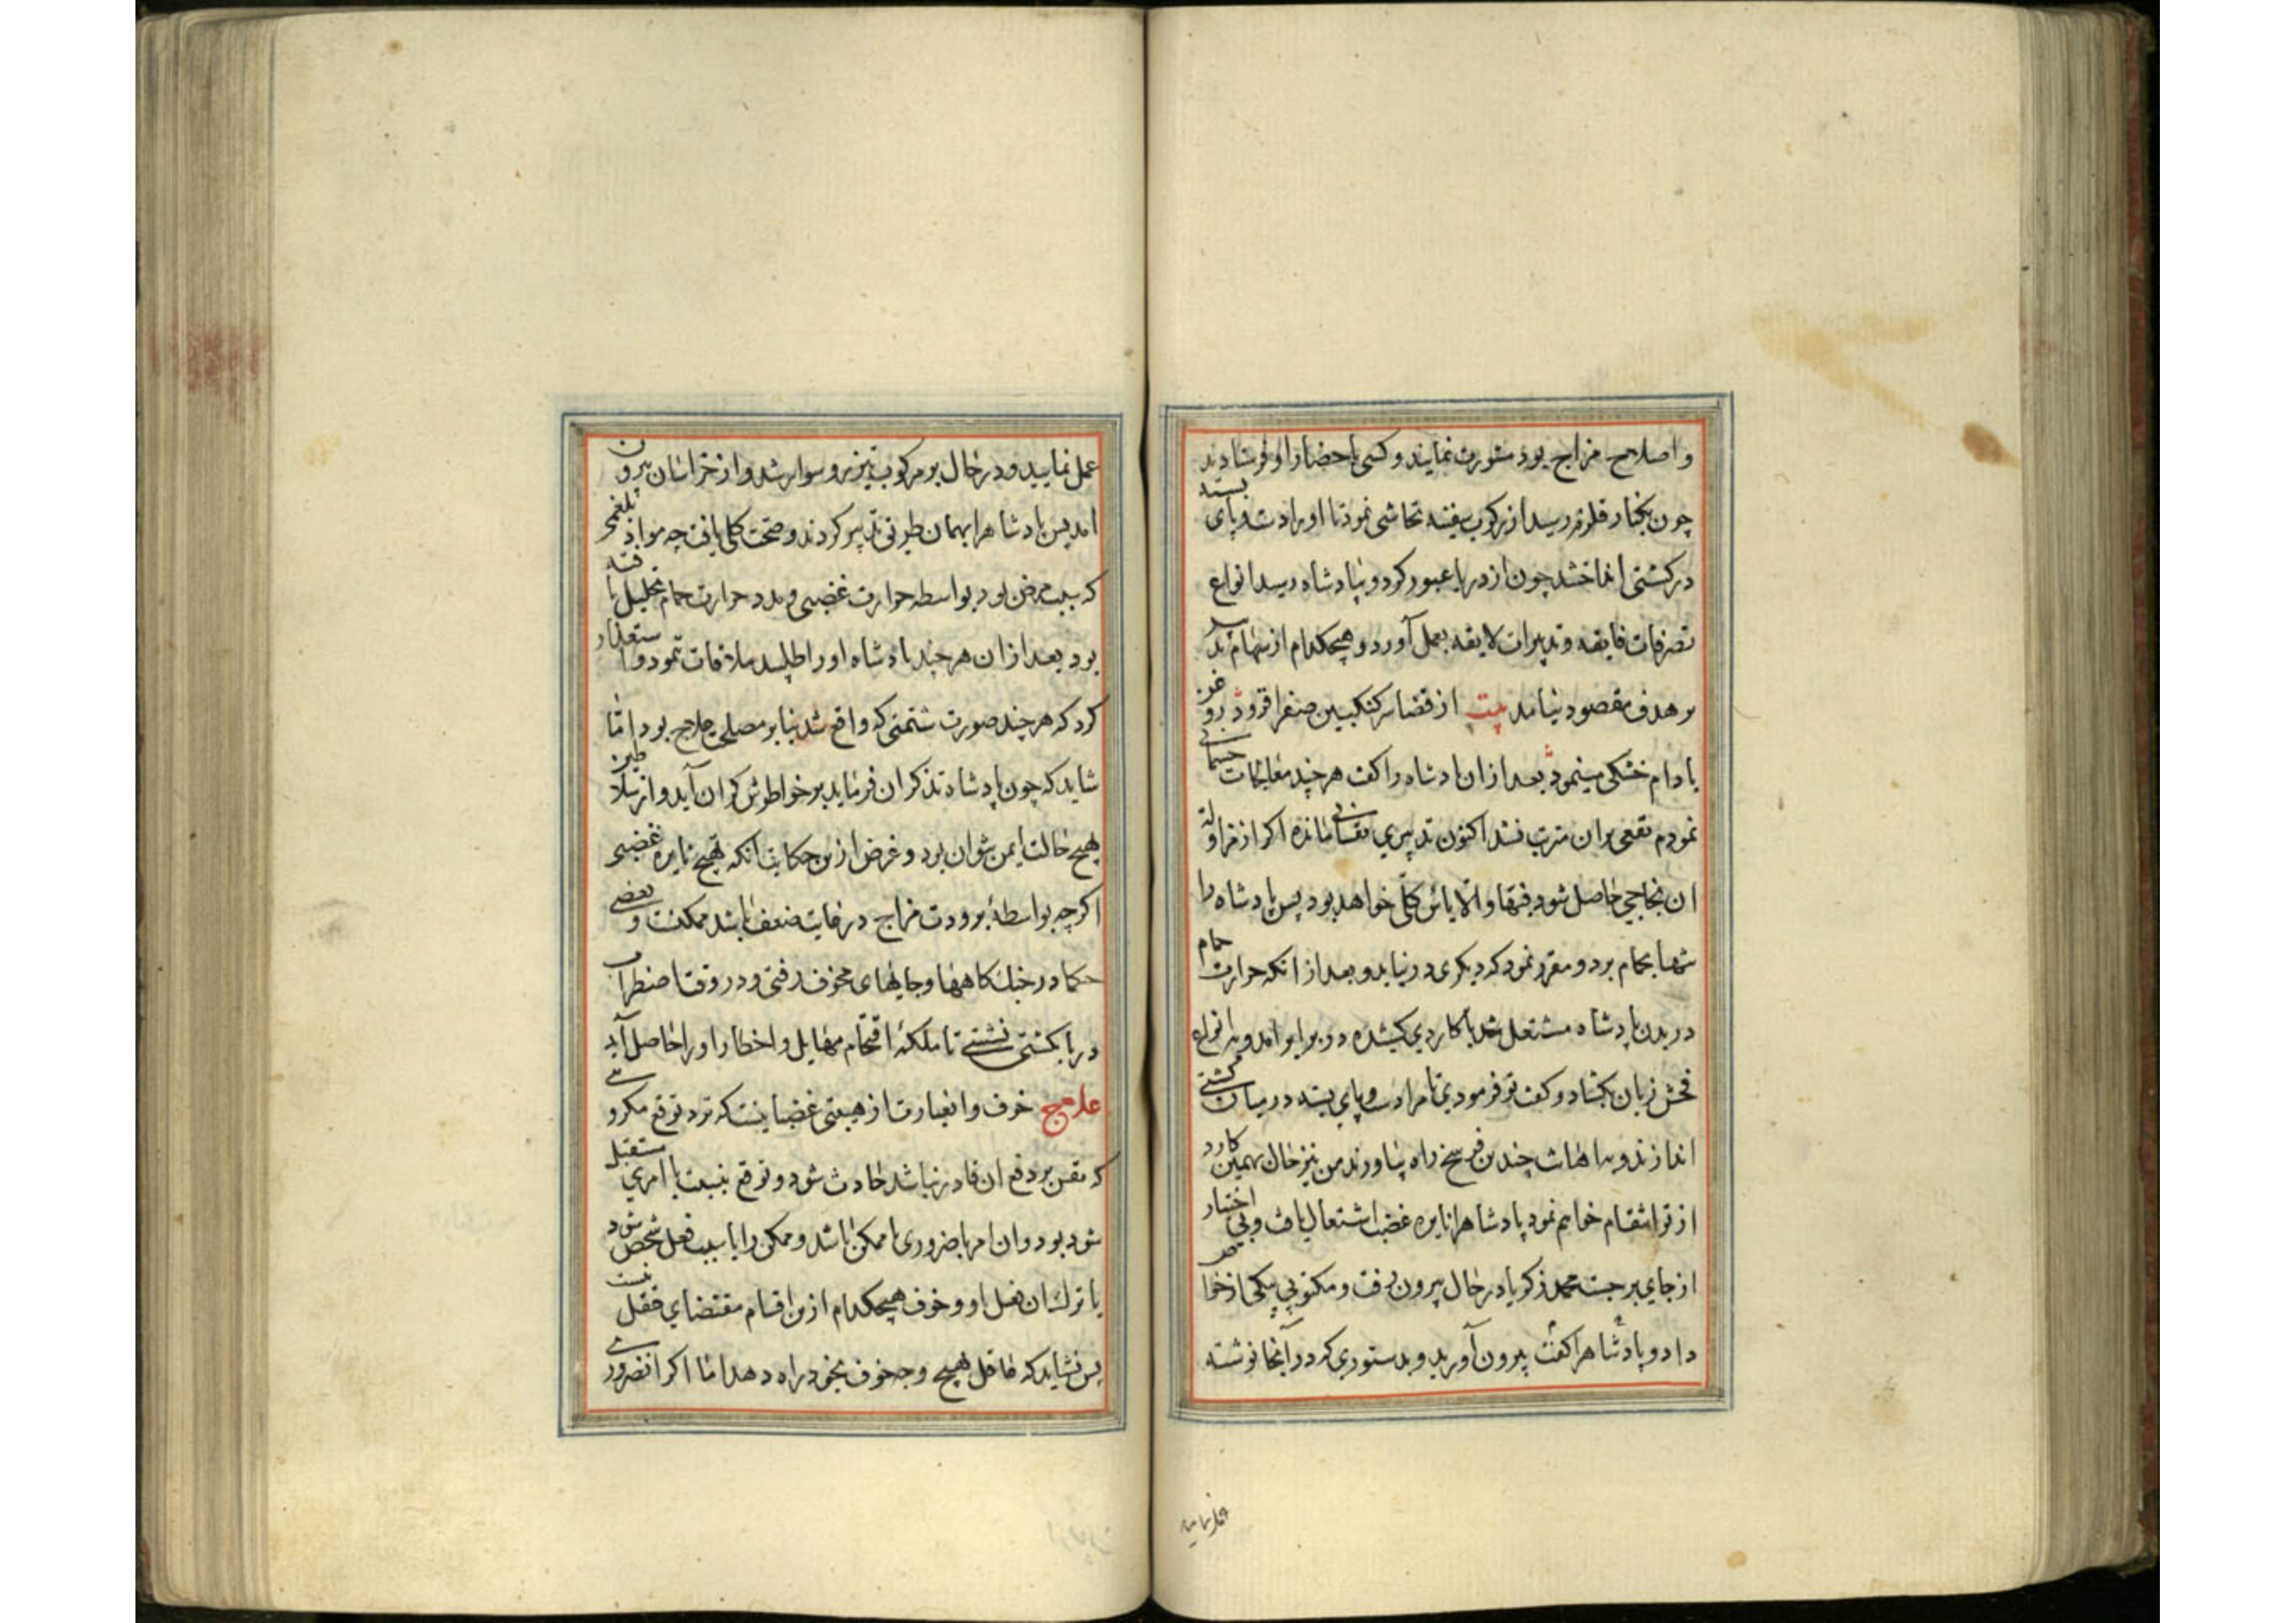 و اصلاح مزاج بود مشورت نمایند و کسی باحضار او فرستادند
چون بکنار قلزم رسید از رکوب سفینه تحاشی نمود تا او را دست و پای بسته
در کشتی انداختند چون از دریا عبور کرد و بپادشاه رسید انواع
تصرفات فایقه و تدبیرات لایقه بعمل آورد و هیچکدام از سهام تدبیر
بر هدف مقصود نیامد بیت از قضا سرکنکبین صفرا فزود روغن
بادام خشکی مینمود بعد از ان پادشاه را کفت هر چند معالجات جسمانی
نمودم نفعی بران مترتب نشد اکنون تدبیری نفسانی مانده اکر از مزاولت
ان نجاحی حاصل شود فبها و الا یاس کلی خواهد بود پس پادشاه را
تنها بحمام برد و مقرر نمود که دیکری در نیاید و بعد از انکه حرارت حمام
در بدن پادشاه مشتعل شد با کاردی کشیده در برابر امد و بانواع
فحش زبان بکشاد و کفت تو فرمودی تا مرا دست و پای بسته در میان کشتی
اندازند و باهانت چندین فرسخ راه بیاورند من نیز حال بهمین کارد
از تو انتقام خواهم نمود پادشاه را نایره غضب اشتعال یافت و بی اختیار
از جای برجست محمد زکریا در حال بیرون رفت و مکتوبی بیکی از خواص
داد و پادشاه را کفت بیرون آورید و بدستوری که در آنجا نوشته
عمل نمایید
عمل نمایید و در حال بر مرکوب تیزرو سوار شد و از خراسان بیرون
امد پس پادشاه را بهمان طریق تدبیر کردند و صحت کلی یافت چه مواد بلغمی
که سبب مرض بود بواسطه حرارت غضبی و مدد حرارت حمام تحلیل یافته
بود بعد از ان هر چند پادشاه او را طلبید ملاقات ننمود و استعذار
کرد که هر چند صورت شتمی که واقع شد بنابر مصلحت علاج بود اما
شاید که چون پادشاه تذکر ان فرماید بر خواطرش کران آید و از سلاطین
بهیچ حالت ایمن نتوان بود و غرض ازین حکایت انکه تهییج نایره غضبی
اکرچه بواسطه برودت مزاج در غایت ضعف باشد ممکنست و بعضی
حکما در جنك کاهها و جایهای مخوف رفتی و در وقت اضطراب
دریا بکشتی نشستی تا ملکه اقتحام مهایل و اخطار او را حاصل آید
علاج خوف و ان عبارت از هیئتی نفسانیست که نزد توقع مکروهی
که نفس بر دفع ان قادر نباشد حادث شود و توقع بنسبت با امری مستقبل
شود بود و ان امر یا ضروری یا ممکن باشد و ممکن را یا سبب فعل شخص شود
یا ترك ان فعل او و خوف هیچکدام ازین اقسام مقتضای عقل نیست
پس نشاید که عاقل بهیچ وجه خوف بخود راه دهد اما اکر انضروری